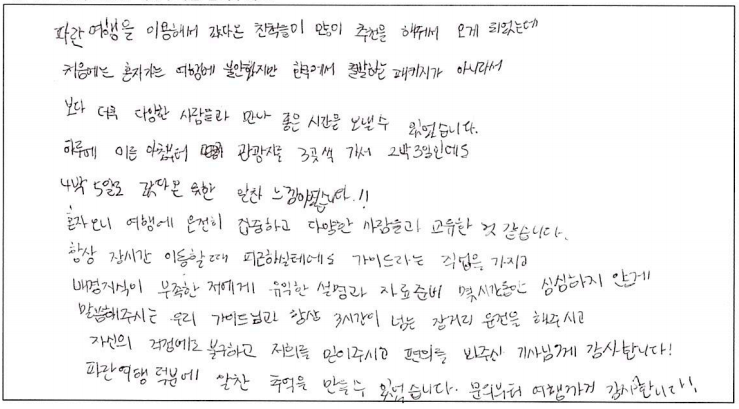 파란여행을 이용해서 갔다온 친척들이 많이 추천을 해줘서 오게 되었는데
처음에는 혼자가는 여행에 불안했지만 한국에서 출발하는 패키지가 아니라서
보다 더욱 다양한 사람들과 만나 좋은 시간을 보낼수 있었습니다.
하루에 이른 아침부터 관광지를 3곳씩 가서 2박3일인데도
4박 5일로 갔다온 듯한 알찬 느낌이었습니다.!!
혼자오니 여행에 온전히 집중하고 다양한 사람들과 교류한 것 같습니다.
항상 장시간 이동할때 피곤하실텐데도 가이드라는 직업을 가지고
배경지식이 부족한 저에게 유익한 설명과 자료준비 몇시간동안 심심하지 안게
말씀해주시는 우리 가이드님과 항상 3시간이 넘는 장거리 운전을 해주시고
자신의 걱정에도 불구하고 저희를 믿어주시고 편의를 봐주신 기사님께 감사합니다!
파란여행 덕분에 알찬 추억을 만들수 있었습니다. 문의부터 여행까지 감사합니다!